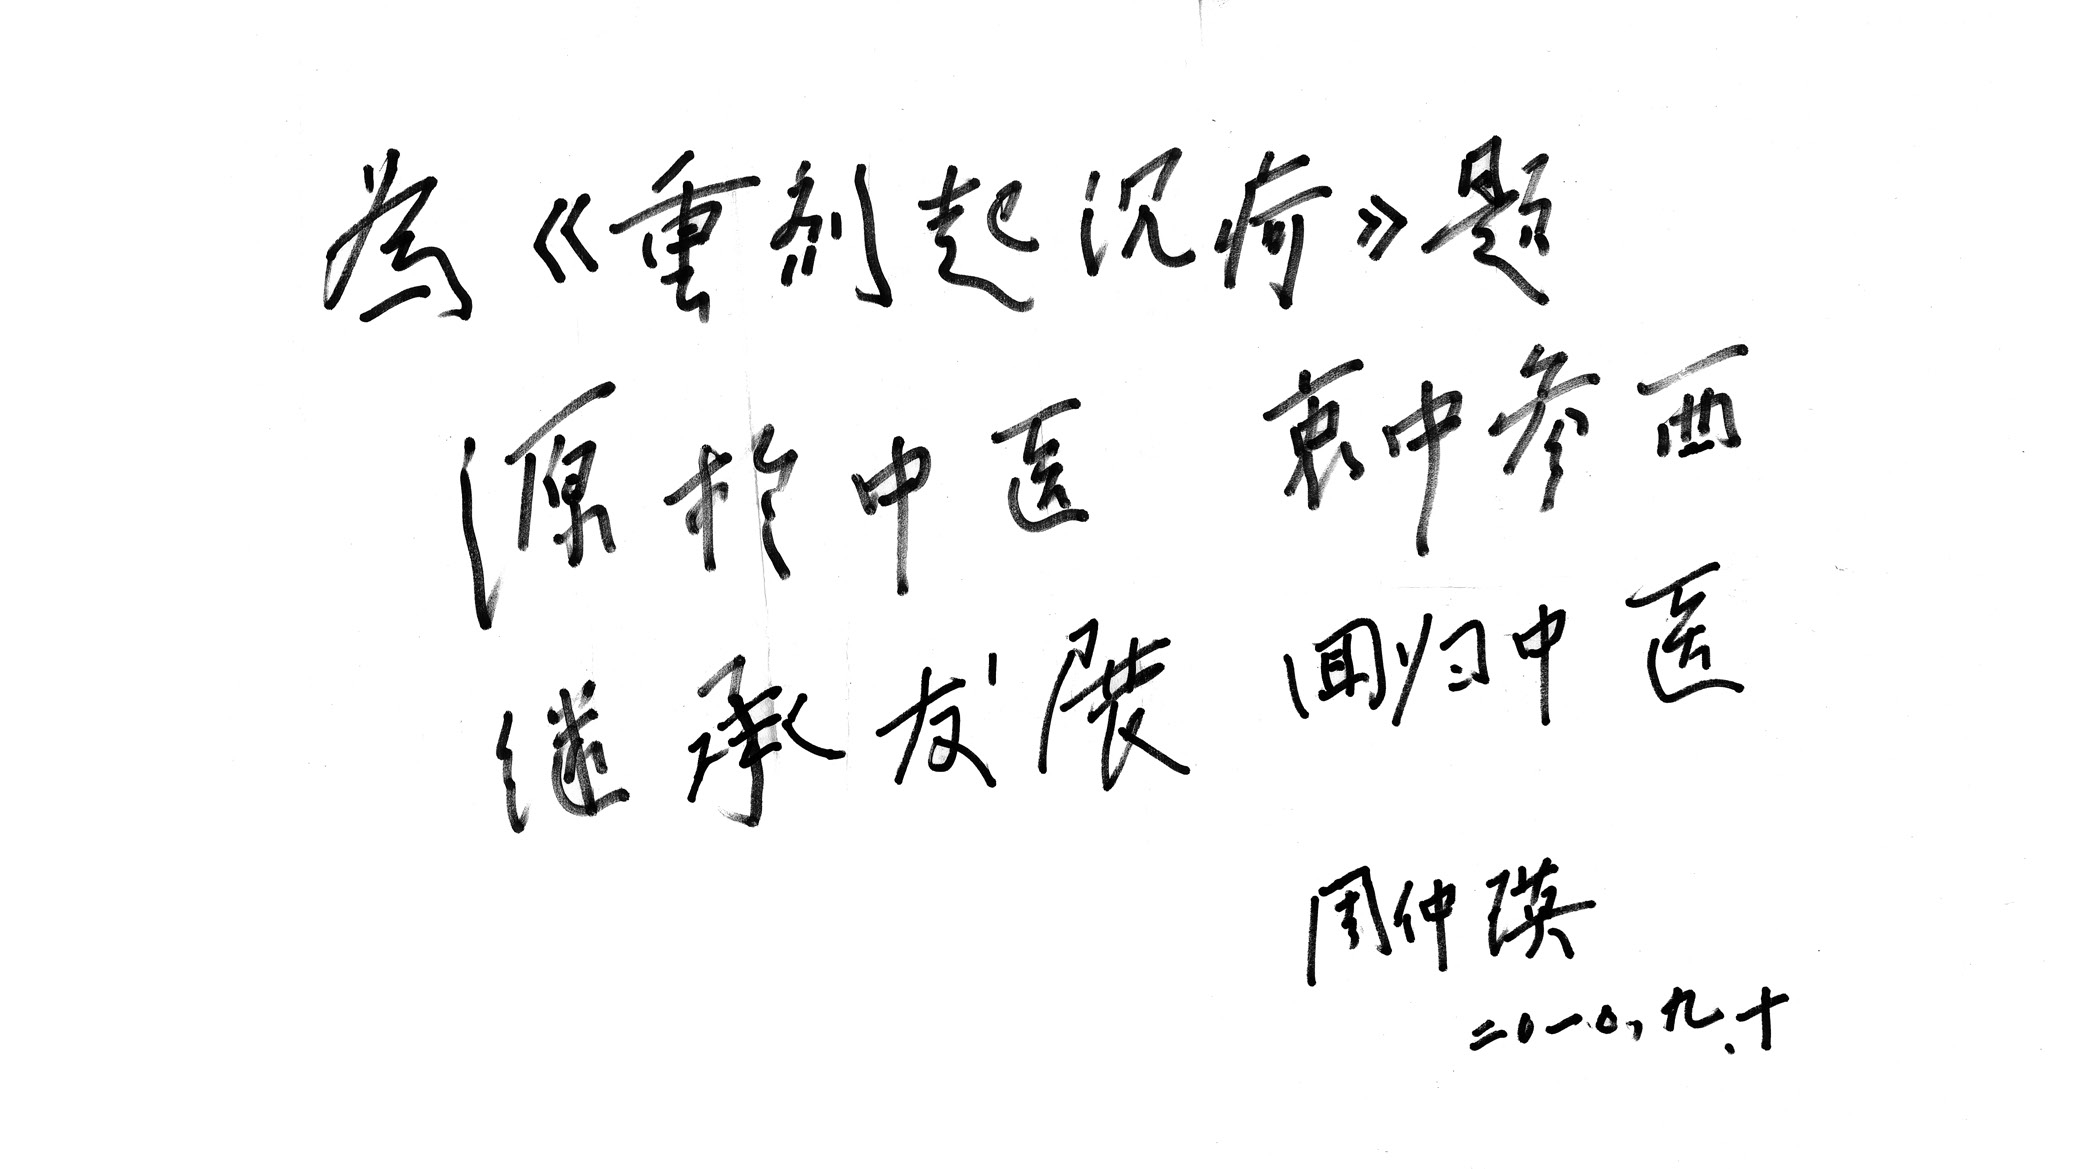 為《重剂起沉疴》题
源於中医 衷中参西
继承发展 回归中医
周仲瑛
二〇一〇,九.十